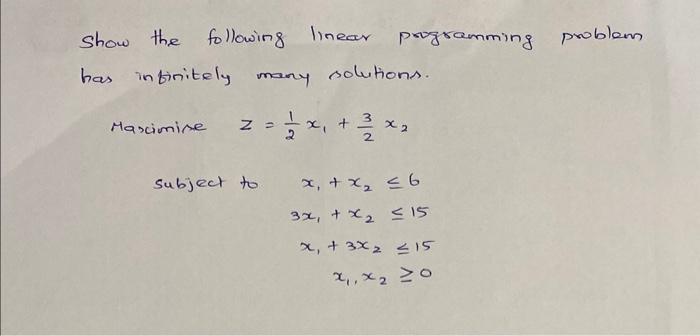 Show the following linear programming problem
has infinitely many solutions.
Maximise Z = 1/2 x₁ + 3/2 x₂
Subject to x₁ + x₂ ≤ 6
3x₁ + x₂ ≤ 15
x₁ + 3x₂ ≤ 15
x₁, x₂ ≥ 0